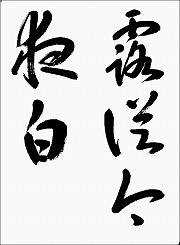 露従今
夜白